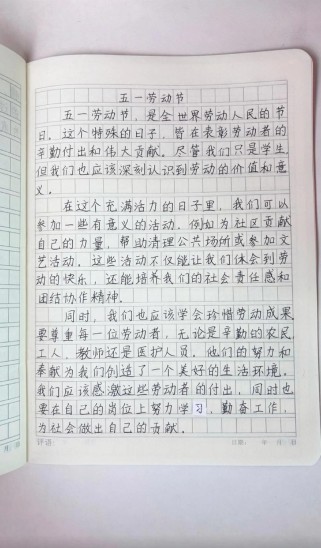 五一劳动节
五一劳动节,是全世界劳动人民的节
日。这个特殊的日子,皆在表彰劳动者的
辛勤付出和伟大贡献。尽管我们只是学生
但我们也应该深刻认识到劳动的价值和意
义。
在这个充满活力的日子里,我们可以
参加一些有意义的活动。例如为社区贡献
自己的力量,帮助清理公共场所或参加文
艺活动。这些活动不仅能让我们体会到劳
动的快乐,还能培养我们的社会责任感和
团结协作精神。
同时,我们也应该学会珍惜劳动成果
要尊重每一位劳动者,无论是辛勤的农民
工人、教师还是医护人员。他们的努力和
奉献为我们创造了一个美好的生活环境。
我们应该感激这些劳动者的付出,同时也
要在自己的岗位上努力学习,勤奋工作,
为社会做出自己的贡献。
评语:
日期: 年 月 日